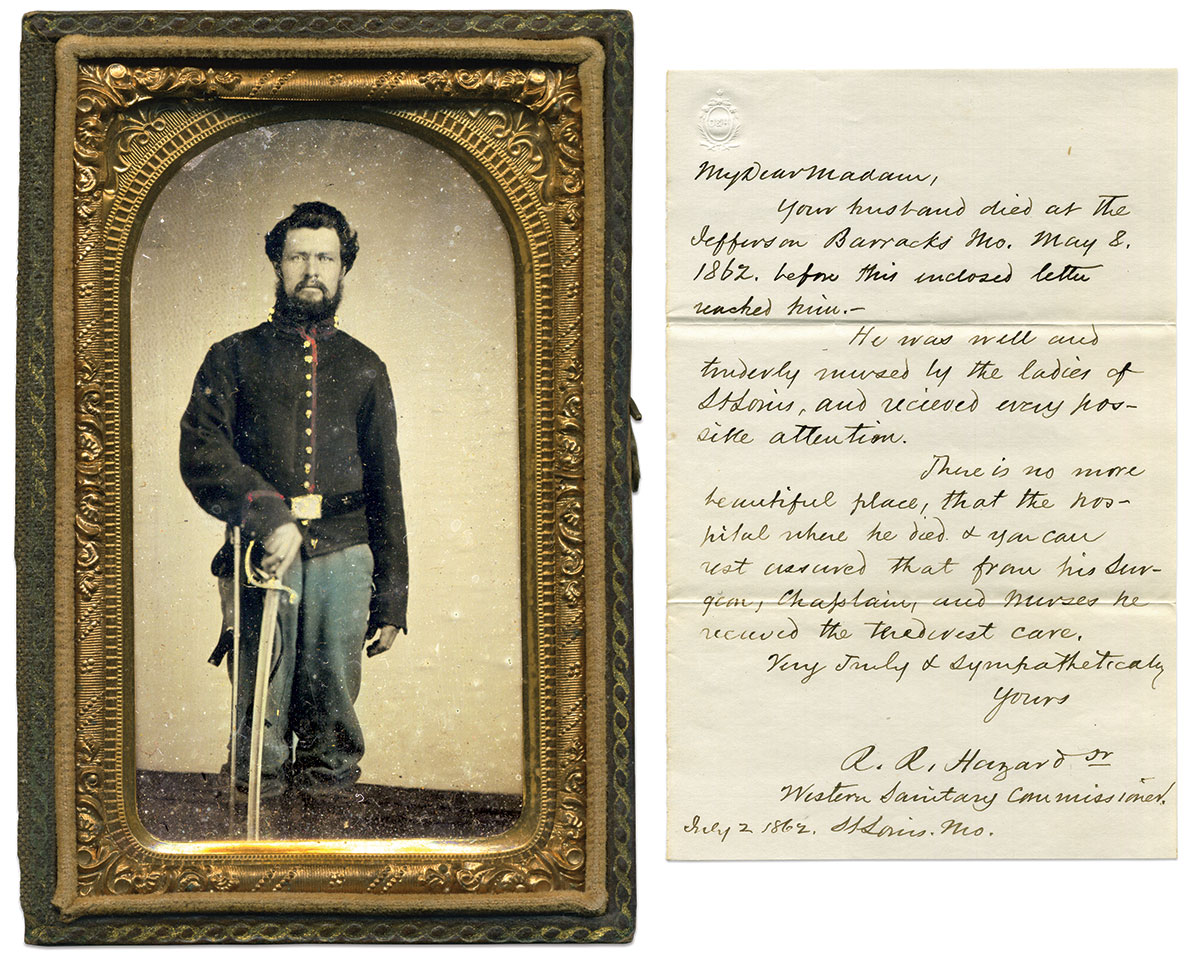 My Dear Madam,
Your husband died at the
Jefferson Barracks Mo. May 8.
1862. before this inclosed letter
reached him.—
He was well and
tenderly nursed by the ladies of
St Louis, and recieved every pos-
sible attention.
There is no more
beautiful place, that the hos-
pital where he died. & you can
rest assured that from his Sur-
geon, Chaplain, and Nurses he
recieved the tenderest care.
Very Truly & Sympathetically
Yours
R. R. Hazard Jr
Western Sanitary Commissioner.
July 2 1862. St Louis. Mo.